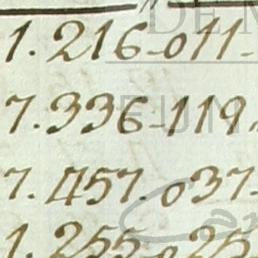 1.216-011-
7.336-119.
7.457.037.
1.255.025